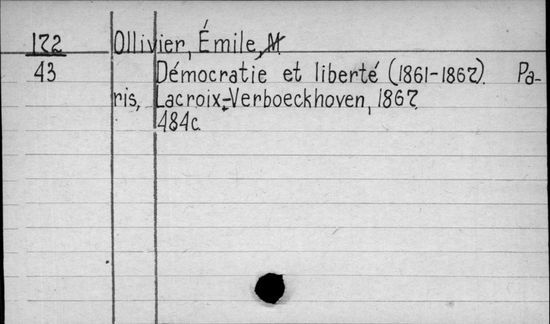 172 Ollivier, Émile, M
43 Démocratie et liberté (1861-1867). Pa-
ris, Lacroix-Verboeckhoven, 1867.
484c.